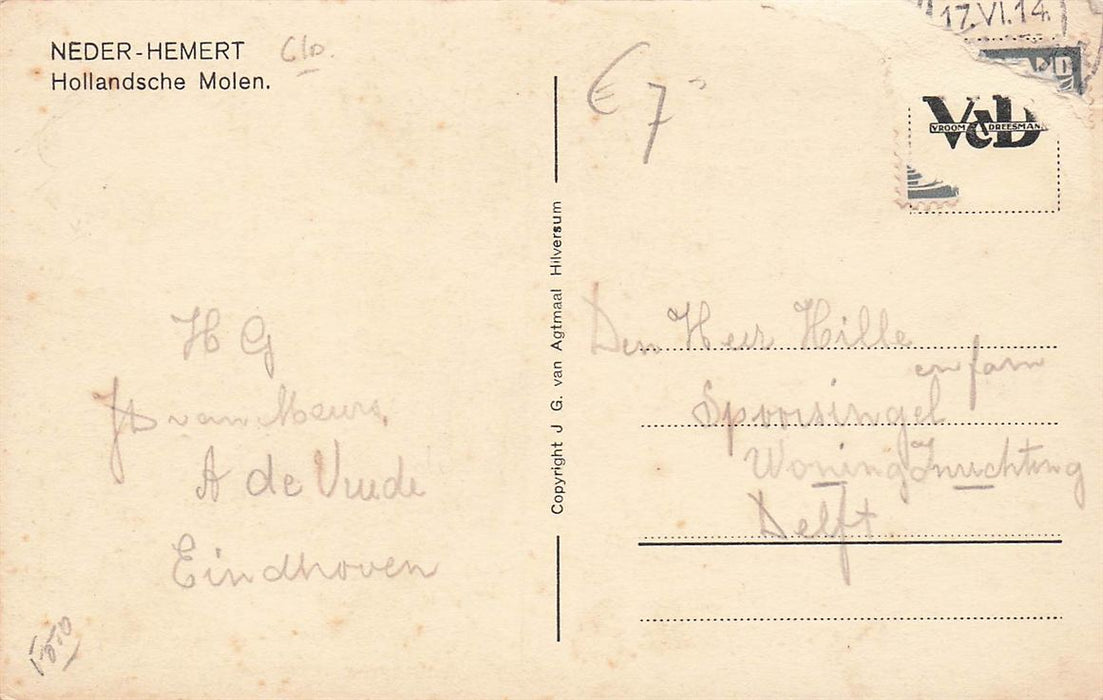 NEDER-HEMERT
Hollandsche Molen.
Clo.
€ 7
17.VI.14.
V&D
VROOM & DREESMANN
Copyright J G. van Agtmaal Hilversum
H G
JD van Meurs,
A de Vrude
Eindhoven
Den Heer Hille
en fam
Spoorsingel
Woning Inrichting
Delft.